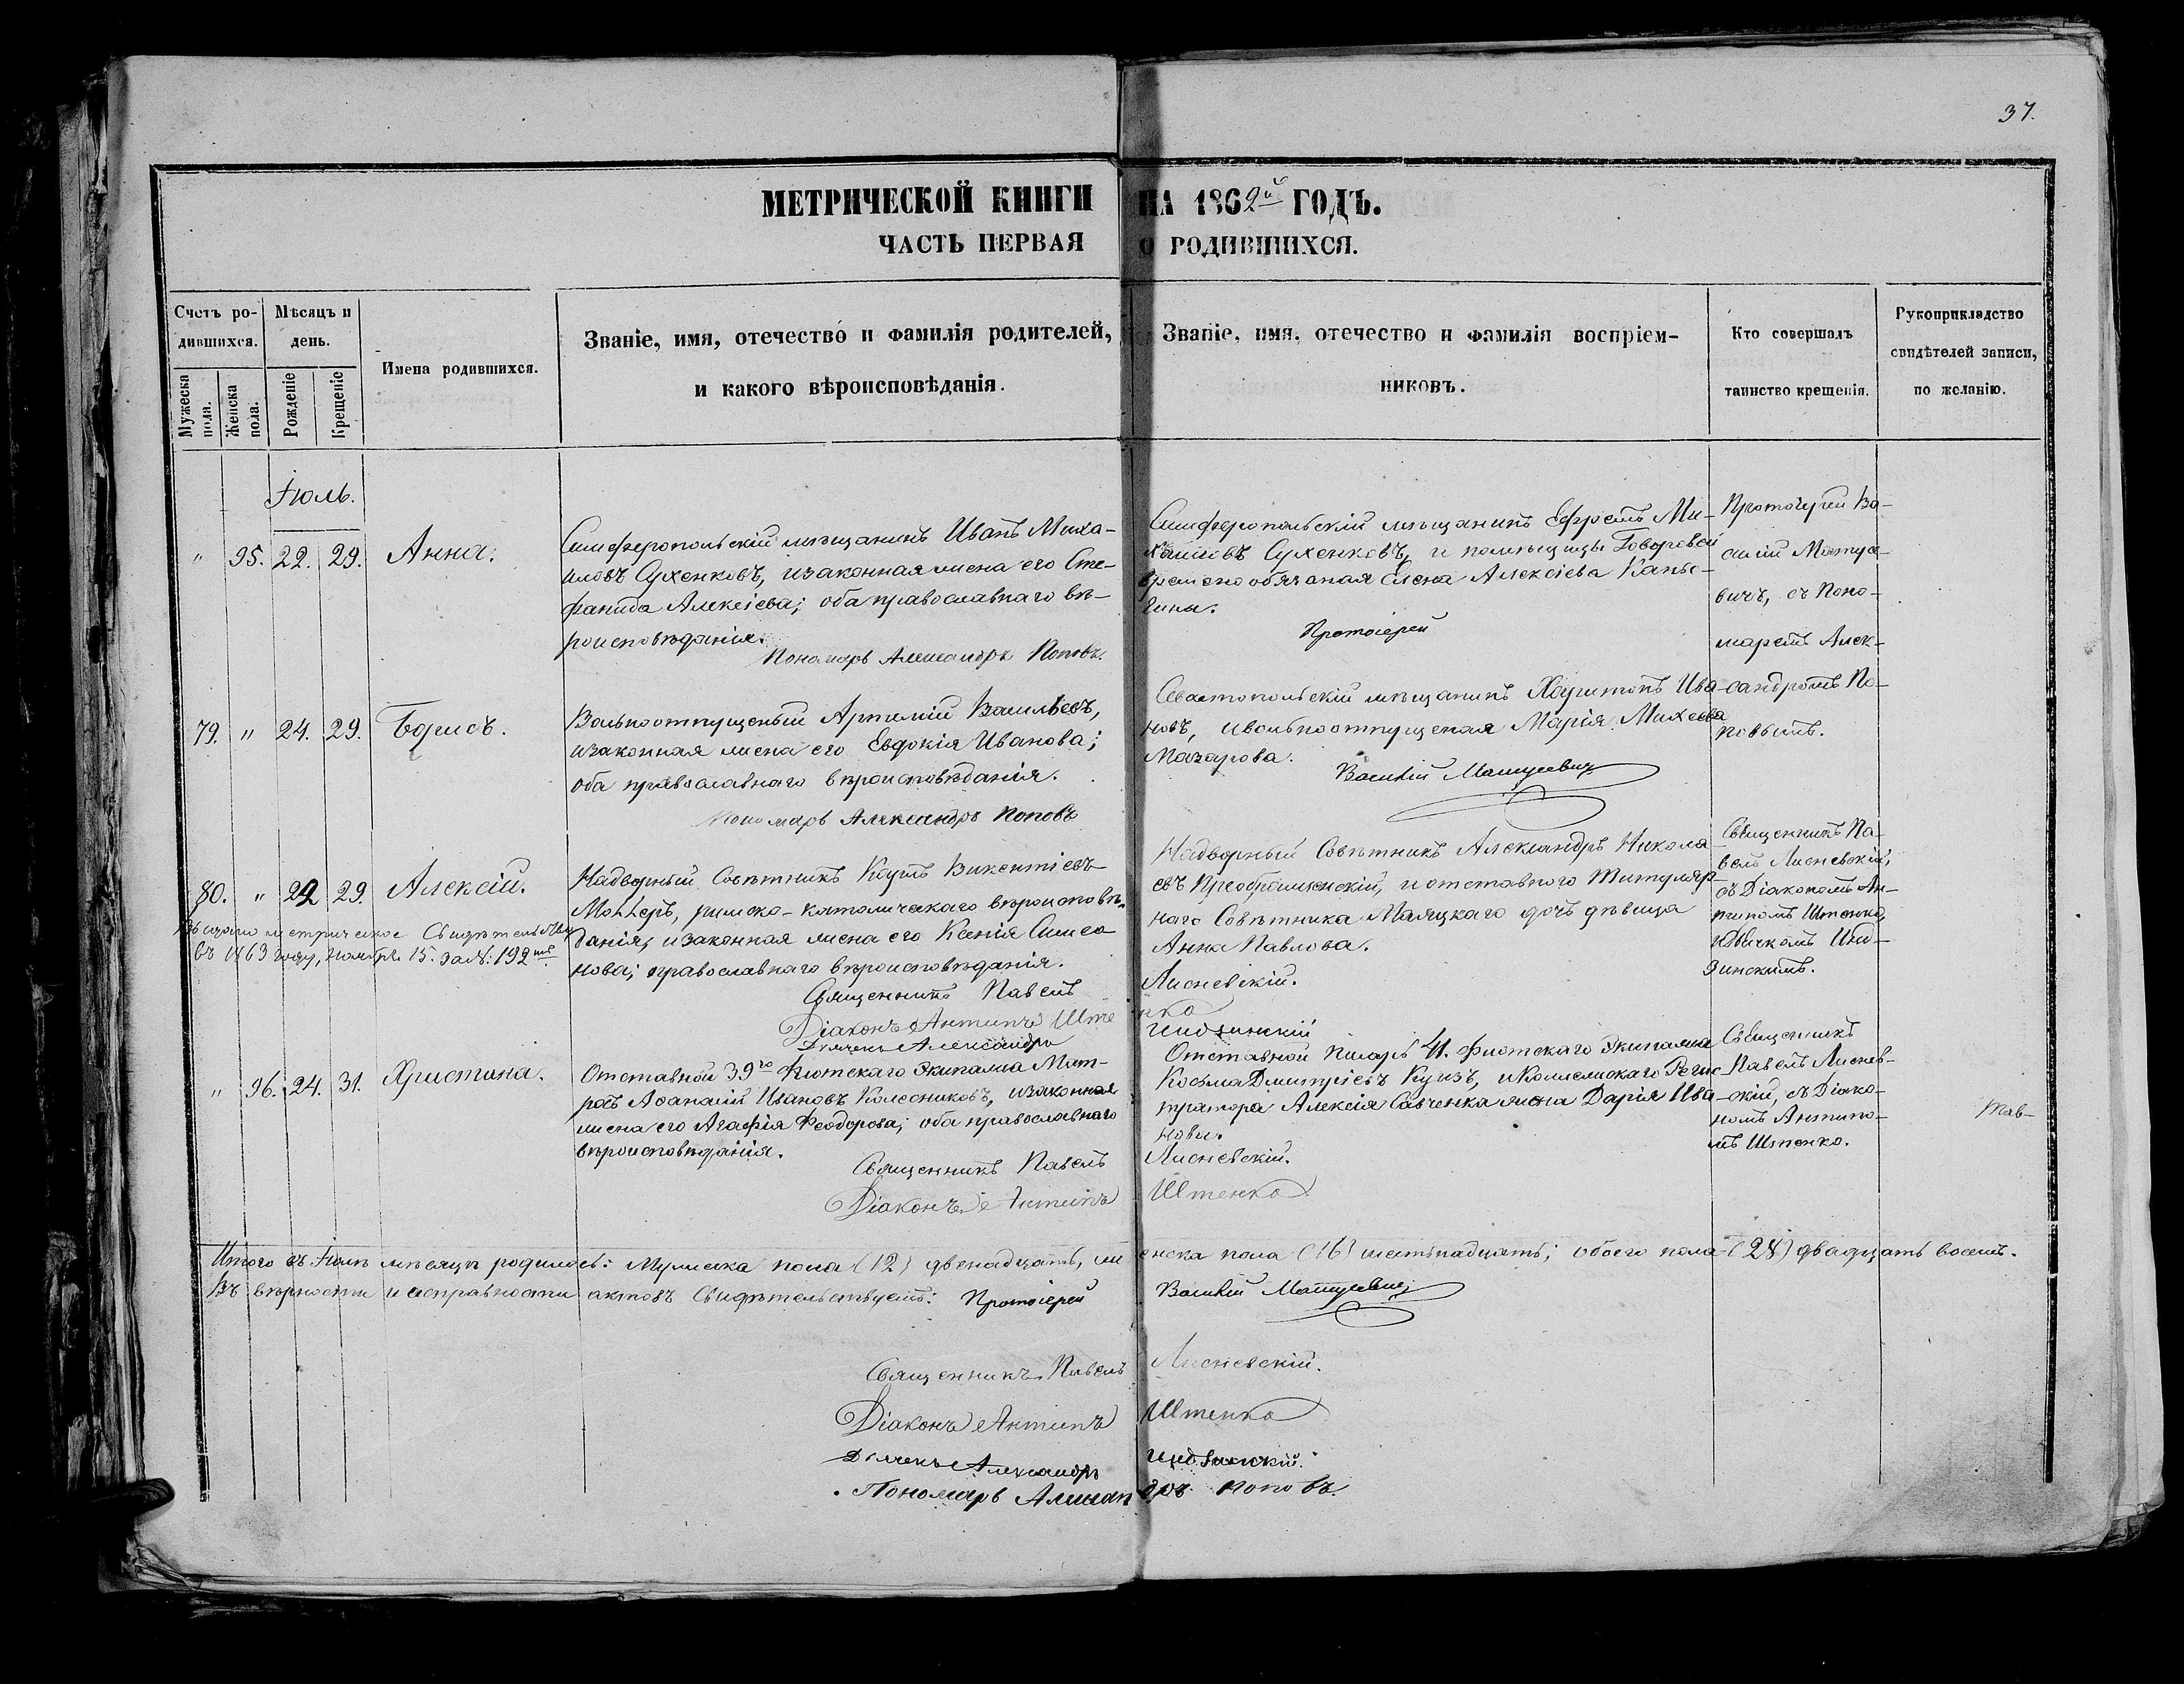 37.
МЕТРИЧЕСКОЙ КНИГИ НА 1862й ГОДЪ.
ЧАСТЬ ПЕРВАЯ О РОДИВШИХСЯ.
Счетъ ро-
дившихся.
Мужеска пола.
Женска пола.
Мѣсяцъ и
день.
Рожденіе
Крещеніе
Имена родившихся.
Званіе, имя, отечество и фамилія родителей,
и какого вѣроисповѣданія.
Званіе, имя, отечество и фамилія воспріем-
никовъ.
Кто совершалъ
таинство крещенія.
Рукоприкладство
свидѣтелей записи,
по желанію.
Іюль.
" 95. 22. 29. Анна.
Симферопольскій мѣщанинъ Иванъ Миха-
иловъ Сухенковъ, и законная жена его Сте-
фанида Алексіева; оба православнаго вѣ-
роисповѣданія.
Пономарь Александръ Поповъ.
Симферопольскій мѣщанинъ Ефремъ Ми-
хаиловъ Сухенковъ, и помѣщицы Говоровой
временно обязаная Елена Алексіева Каны-
гина.
Протоіерей
Протоіерей Ва-
силій Матусе-
вичъ, съ Поно-
маремъ Алек-
сандромъ По-
повымъ.
79. " 24. 29. Борисъ.
Вольноотпущеный Артемій Васильевъ,
и законная жена его Евдокія Иванова;
оба православнаго вѣроисповѣданія.
Пономарь Александръ Поповъ
Севастопольскій мѣщанинъ Харитонъ Ива-
новъ, и вольноотпущеная Марія Михеева
Мазарова.
Василій Матусевичъ
80. " 22 29. Алексій.
Выдано метрическое Свидѣтельство
въ 1863 году, ноября 15. за №: 192мъ
Надворный Совѣтникъ Карлъ Викентіевъ
Моллеръ, римско-католическаго вѣроисповѣ-
данія, и законная жена его Ксенія Симео-
нова; православнаго вѣроисповѣданія.
Священникъ Павелъ Лисневскій.
Діаконъ Антипъ Штенко
Дьячекъ Александръ Индзинскій
Надворный Совѣтникъ Александръ Никола-
евъ Преображенскій, и отставного Титуляр-
наго Совѣтника Маляцкаго дочь дѣвица
Анна Павлова.
Священникъ Па-
велъ Лисневскій,
съ Діакономъ Ан-
типомъ Штенко,
и Дьячкомъ Инд-
зинскимъ.
" 96. 24. 31. Христина.
Отставной 39го Флотскаго Экипажа Мат-
росъ Аѳанасій Ивановъ Колесниковъ, и законная
жена его Агафія Ѳеодорова; оба православнаго
вѣроисповѣданія.
Священникъ Павелъ Лисневскій.
Діаконъ Антипъ Штенко
Отставной Писарь 41. Флотскаго Экипажа
Косьма Димитріевъ Кузъ, и Коллежскаго Регис-
тратора Алексія Савченка жена Дарія Ива-
нова.
Священникъ
Павелъ Лиснев-
скій, съ Діако-
номъ Антипо-
мъ Штенко.
Тав-
Итого въ Іюлѣ мѣсяцѣ родилось: Мужеска пола (12) двенадцать, женска пола (16) шестьнадцать; обоего пола (28) двадцать восемь.
Въ вѣрности и исправности актовъ Свидѣтельствуетъ: Протоіерей Василій Матусевичъ
Священникъ Павелъ Лисневскій.
Діаконъ Антипъ Штенко
Дьячекъ Александръ Индзинскій.
Пономарь Александръ Поповъ.